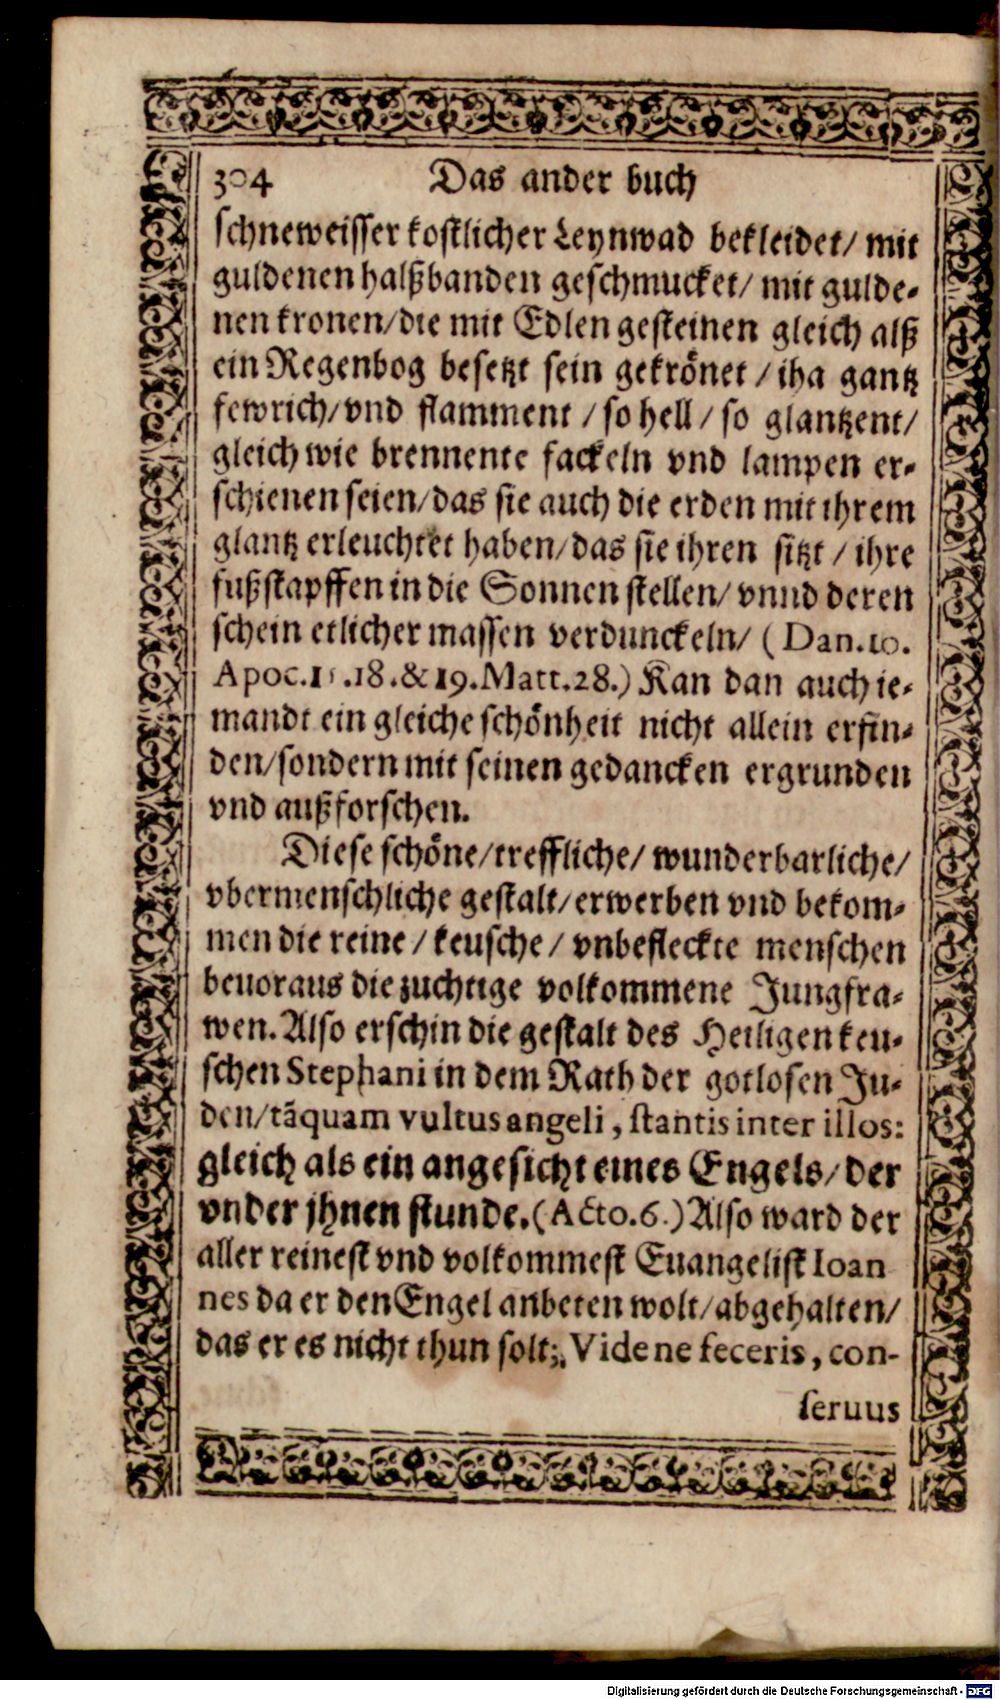 304 Das ander buch
schneweisser kostlicher Leynwad bekleidet/ mit
guldenen halßbanden geschmucket/ mit gulde-
nen kronen/die mit Edlen gesteinen gleich alß
ein Regenbog besetzt sein gekrönet / iha gantz
fewrich/vnd flamment / so hell / so glantzent/
gleich wie brennente fackeln vnd lampen er-
schienen seien/das sie auch die erden mit ihrem
glantz erleuchtet haben/das sie ihren sitzt / ihre
fußstapffen in die Sonnen stellen/ vnnd deren
schein etlicher massen verdunckeln/ (Dan.10.
Apoc. .18.&19.Matt.28.) Kan dan auch ie-
mandt ein gleiche schönheit nicht allein erfin-
den/sondern mit seinen gedancken ergrunden
vnd außforschen.
Diese schöne/treffliche/ wunderbarliche/
vbermenschliche gestalt/erwerben vnd bekom-
men die reine / keusche / vnbefleckte menschen
beuoraus die zuchtige volkommene Jungfra-
wen. Also erschin die gestalt des Heiligen keu-
schen Stephani in dem Rath der gotlosen Ju-
den/tãquam vultus angeli, stantis inter illos:
gleich als ein angesicht eines Engels/ der
vnder jhnen stunde.(Acto.6.) Also ward der
aller reinest vnd volkommest Euangelist Ioan
nes da er den Engel anbeten wolt/abgehalten/
das er es nicht thun solt;, Vide ne feceris, con-
seruus
Digitalisierung gefördert durch die Deutsche Forschungsgemeinschaft - DFG